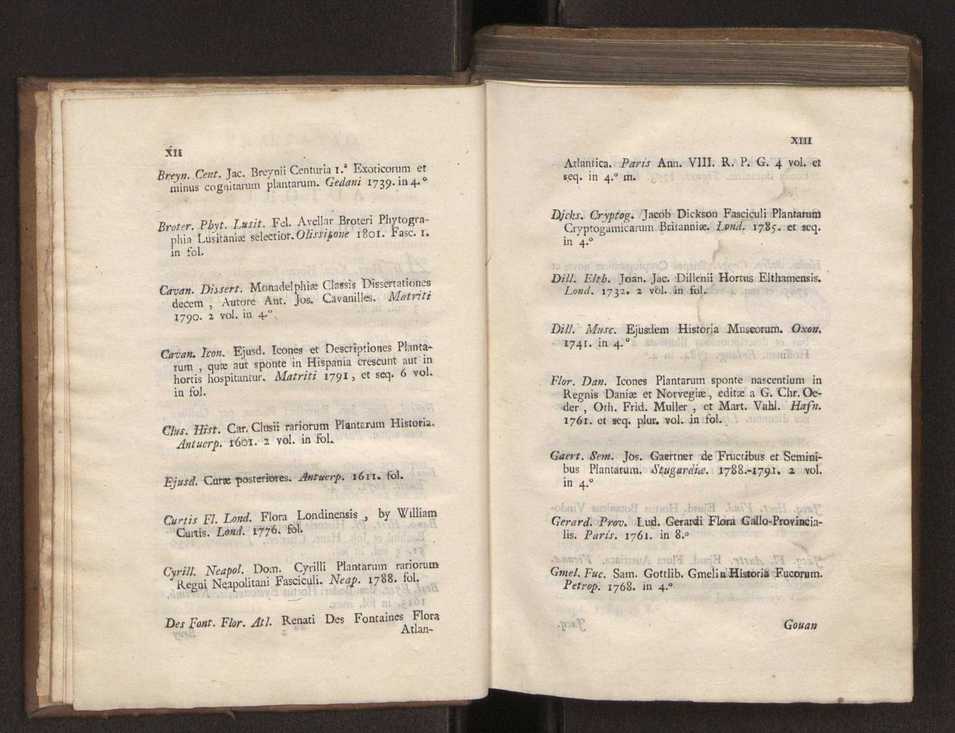 XII
Breyn. Cent. Jac. Breynii Centuria 1.ª Exoticorum et
minus cognitarum plantarum. Gedani 1739. in 4.º
Broter. Phyt. Lusit. Fel. Avellar Broteri Phytogra-
phia Lusitaniæ selectior. Olissipone 1801. Fasc. 1.
in fol.
Cavan. Dissert. Monadelphiæ Classis Dissertationes
decem , Autore Ant. Jos. Cavanilles. Matriti
1790. 2 vol. in 4.º
Cavan. Icon. Ejusd. Icones et Descriptiones Planta-
rum , quæ aut sponte in Hispania crescunt aut in
hortis hospitantur. Matriti 1791 , et seq. 6 vol.
in fol.
Clus. Hist. Car. Clusii rariorum Plantarum Historia.
Antuerp. 1601. 2 vol. in fol.
Ejusd. Curæ posteriores. Antuerp. 1611. fol.
Curtis Fl. Lond. Flora Londinensis , by William
Curtis. Lond. 1776. fol.
Cyrill. Neapol. Dom. Cyrilli Plantarum rariorum
Regni Neapolitani Fasciculi. Neap. 1788. fol.
Des Font. Flor. Atl. Renati Des Fontaines Flora
Atlan-
XIII
Atlantica. Paris Ann. VIII. R. P. G. 4 vol. et
seq. in 4.º m.
Dichs. Cryptog. Jacob Dickson Fasciculi Plantarum
Cryptogamicarum Britanniæ. Lond. 1785. et seq.
in 4.º
Dill. Elth. Joan. Jac. Dillenii Hortus Elthamensis.
Lond. 1732. 2 vol. in fol.
Dill. Musc. Ejusdem Historia Muscorum. Oxon.
1741. in 4.º
Flor. Dan. Icones Plantarum sponte nascentium in
Regnis Daniæ et Norvegiæ, editæ a G. Chr. Oe-
der , Oth. Frid. Muller , et Mart. Vahl. Hafn.
1761. et seq. plur. vol. in fol.
Gaert. Sem. Jos. Gaertner de Fructibus et Semini-
bus Plantarum. Stugardiæ. 1788.-1791. 2 vol.
in 4.º
Gerard. Prov. Lud. Gerardi Flora Gallo-Provincia-
lis. Paris. 1761. in 8.º
Gmel. Fuc. Sam. Gottlib. Gmelin Historia Fucorum.
Petrop. 1768. in 4.º
Gouan